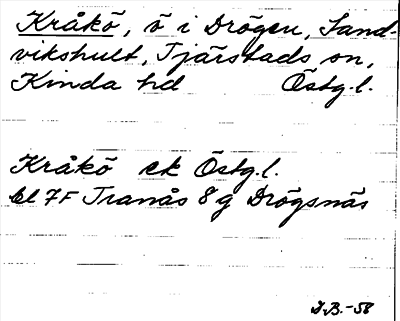 Kråkö, ö i Drögen, Sand-
vikshult, Tjärstads sn,
Kinda hd Östg.l.
Kråkö ek Östg.l.
bl 7F Tranås 8g Drögsnäs
D.B.-58